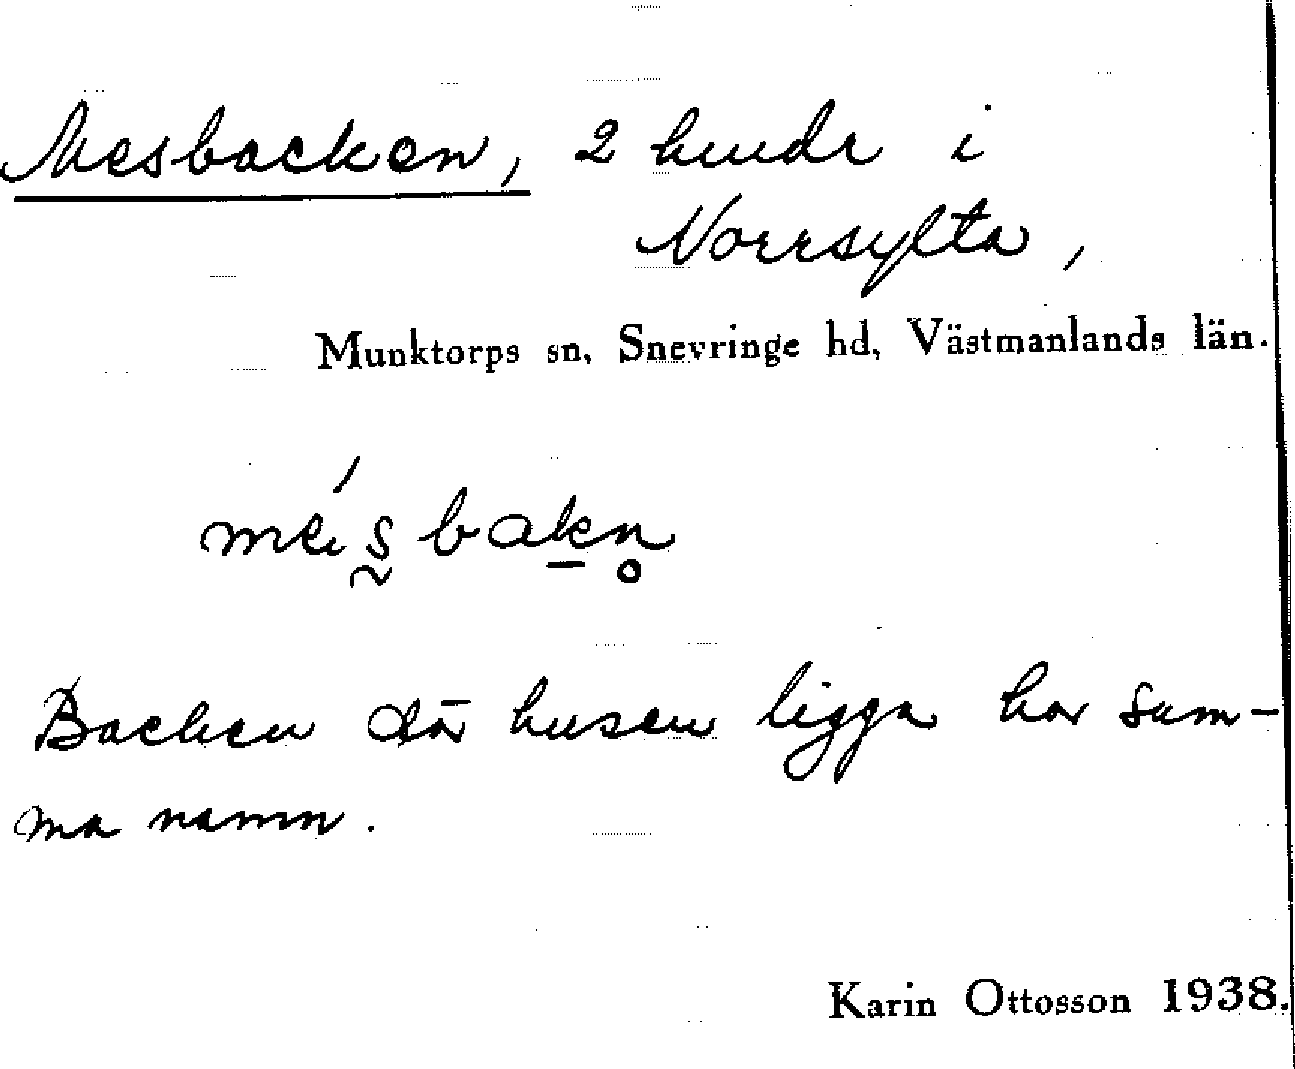 Mesbacken, 2 husdr i
Norrsylta,
Munktorps sn, Snevringe hd, Västmanlands län.
Backen där husen ligga har sam-
ma namn.
Karin Ottosson 1938.